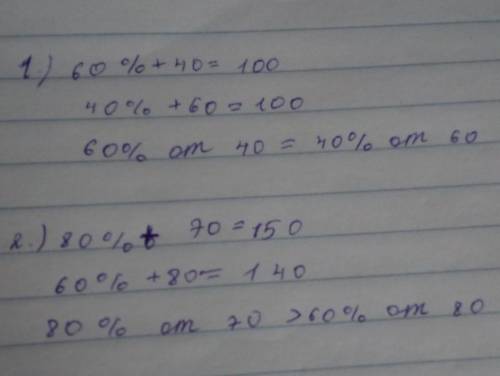 1.) 60% + 40 = 100
40% + 60 = 100
60% от 40 = 40% от 60
2.) 80% + 70 = 150
60% + 80 = 140
80% от 70 > 60% от 80